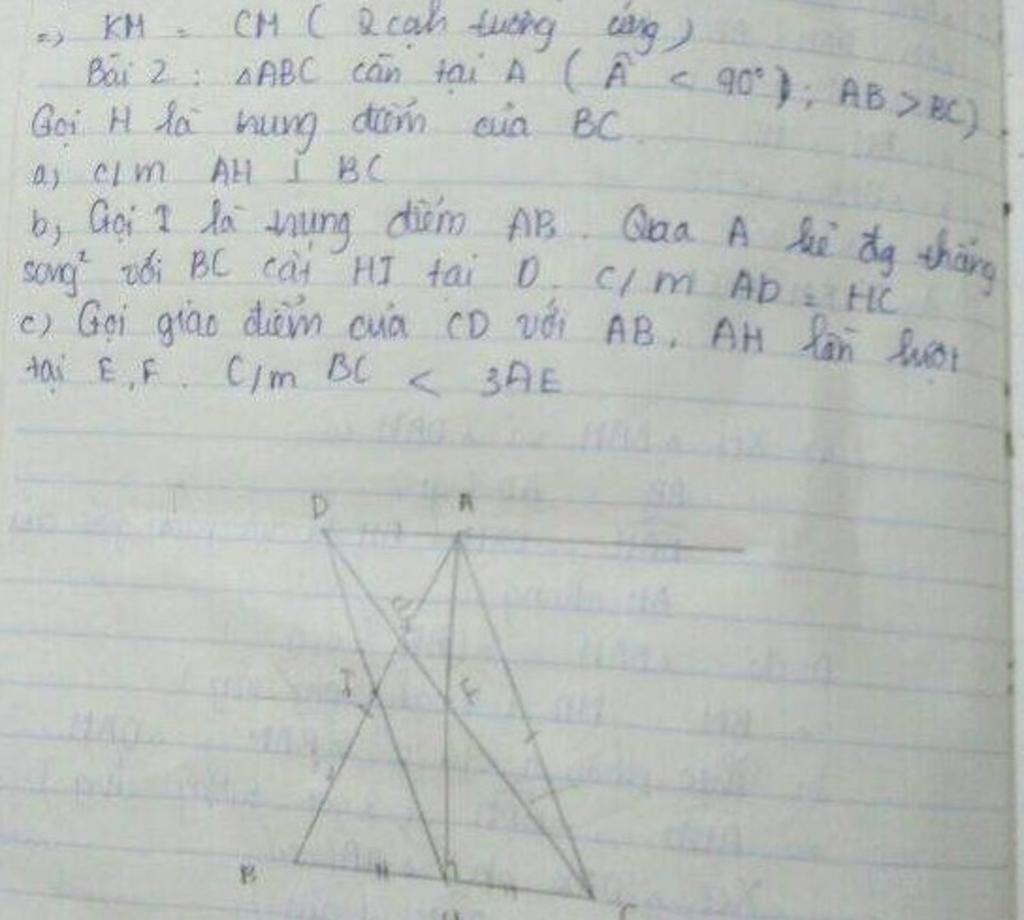 => KM = CM ( 2 cạh tương ứng )
Bài 2 : △ABC cân tại A ( Â < 90° ) ; AB > BC)
Gọi H là trung điểm của BC
a) c/m AH ⊥ BC
b) Gọi I là trung điểm AB. Qua A kẻ đg thẳng
song² với BC cắt HI tại D. C/m AD = HC
c) Gọi giao điểm của CD với AB, AH lần lượt
tại E, F. C/m BC < 3AE
D A
E
I F
B H C